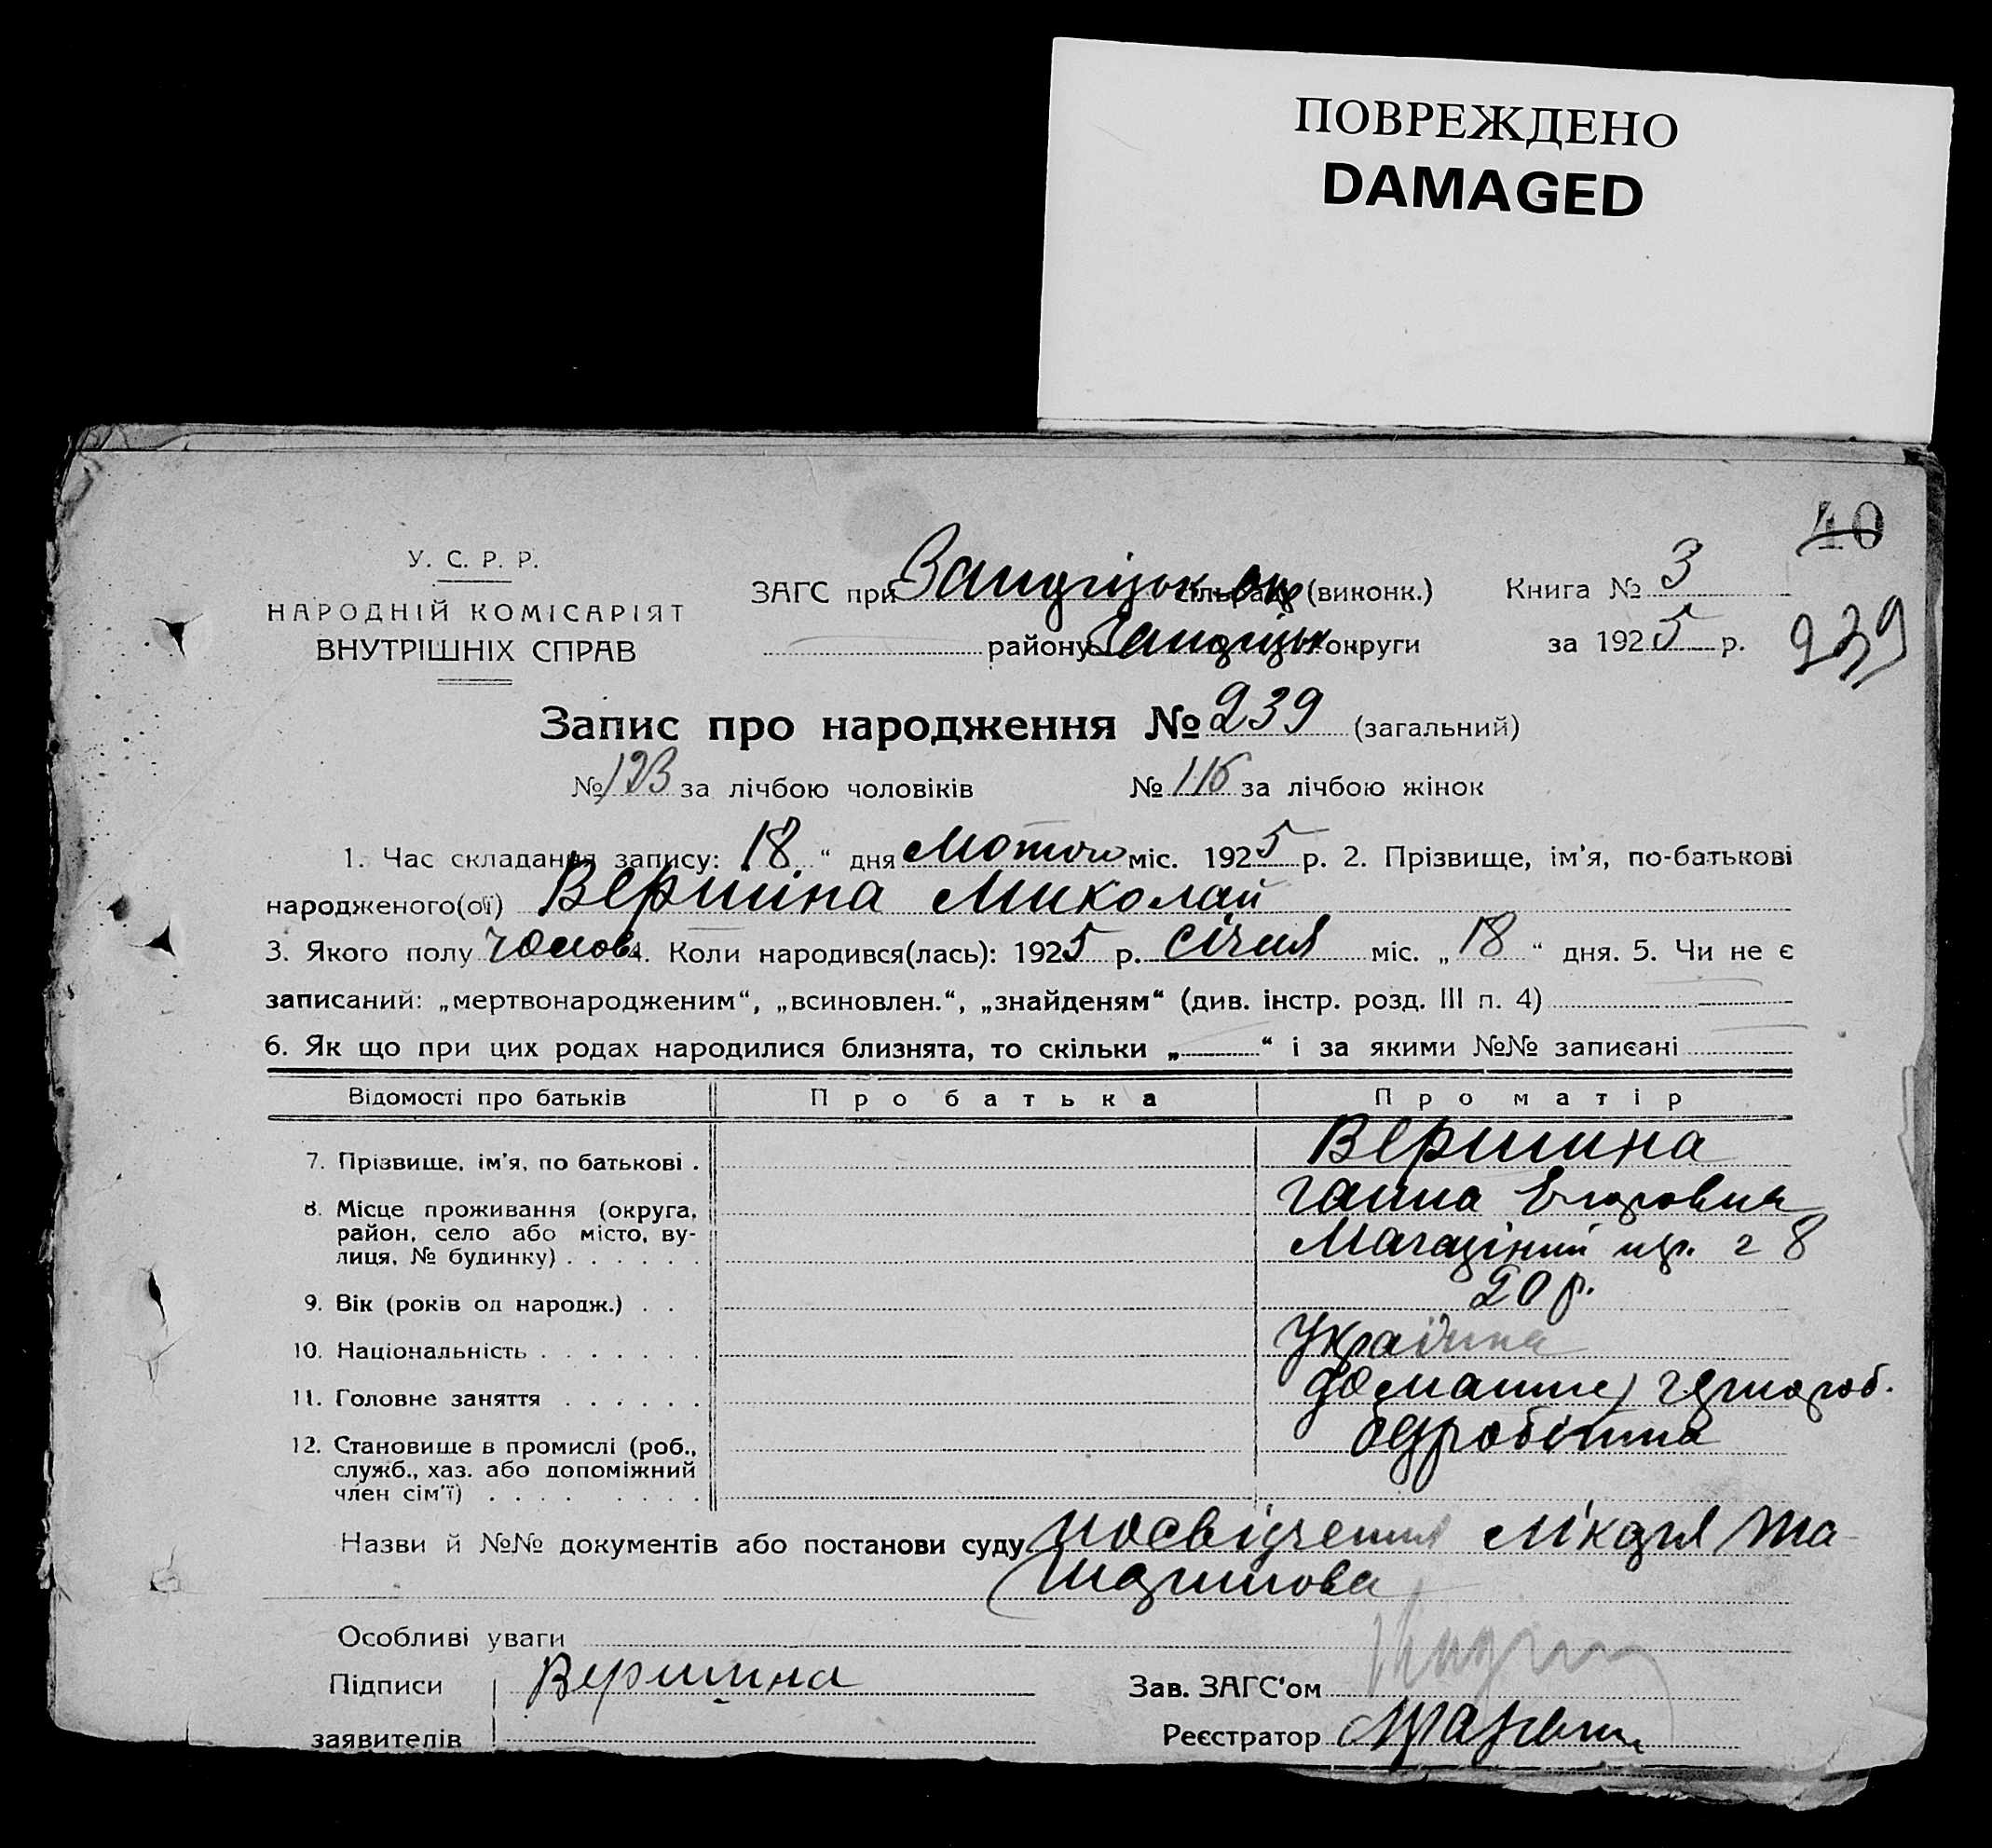 ПОВРЕЖДЕНО
DAMAGED
40
У. С. Р. Р.
НАРОДНІЙ КОМІСАРІЯТ
ВНУТРІШНІХ СПРАВ
ЗАГС при (виконк.)
району округи
Книга № 3
за 1925 р.
239
Запис про народження № 239 (загальний)
№ 123 за лічбою чоловіків № 116 за лічбою жінок
1. Час складання запису: 18 “ дня Лютого міс. 1925 р. 2. Прізвище, ім'я, по-батькові
народженого(ої) Вершина Миколай
3. Якого полу чолов. 4. Коли народився(лась): 1925 р. Січня міс. „ 18 “ дня. 5. Чи не є
записаний: „мертвонародженим“, „всиновлен.“, „знайденям“ (див. інстр. розд. III п. 4)
6. Як що при цих родах народилися близнята, то скільки „ “ і за якими №№ записані
Відомості про батьків Про батька Про матір
7. Прізвище, ім'я, по батькові . Вершина
8. Місце проживання (округа, Ганна Егоровна
район, село або місто, ву-
лиця, № будинку) . . . . . . 8
9. Вік (років од народж.) . . 20 р.
10. Національність . . . . . . . Українка
11. Головне заняття . . . . . . домашня
12. Становище в промислі (роб.,
служб., хаз. або допоміжний
член сім'ї) . . . . . . . .
Назви й №№ документів або постанови суду посвідчення лікаря
Особливі уваги
Підписи Вершина Зав. ЗАГС'ом
заявителів Реєстратор